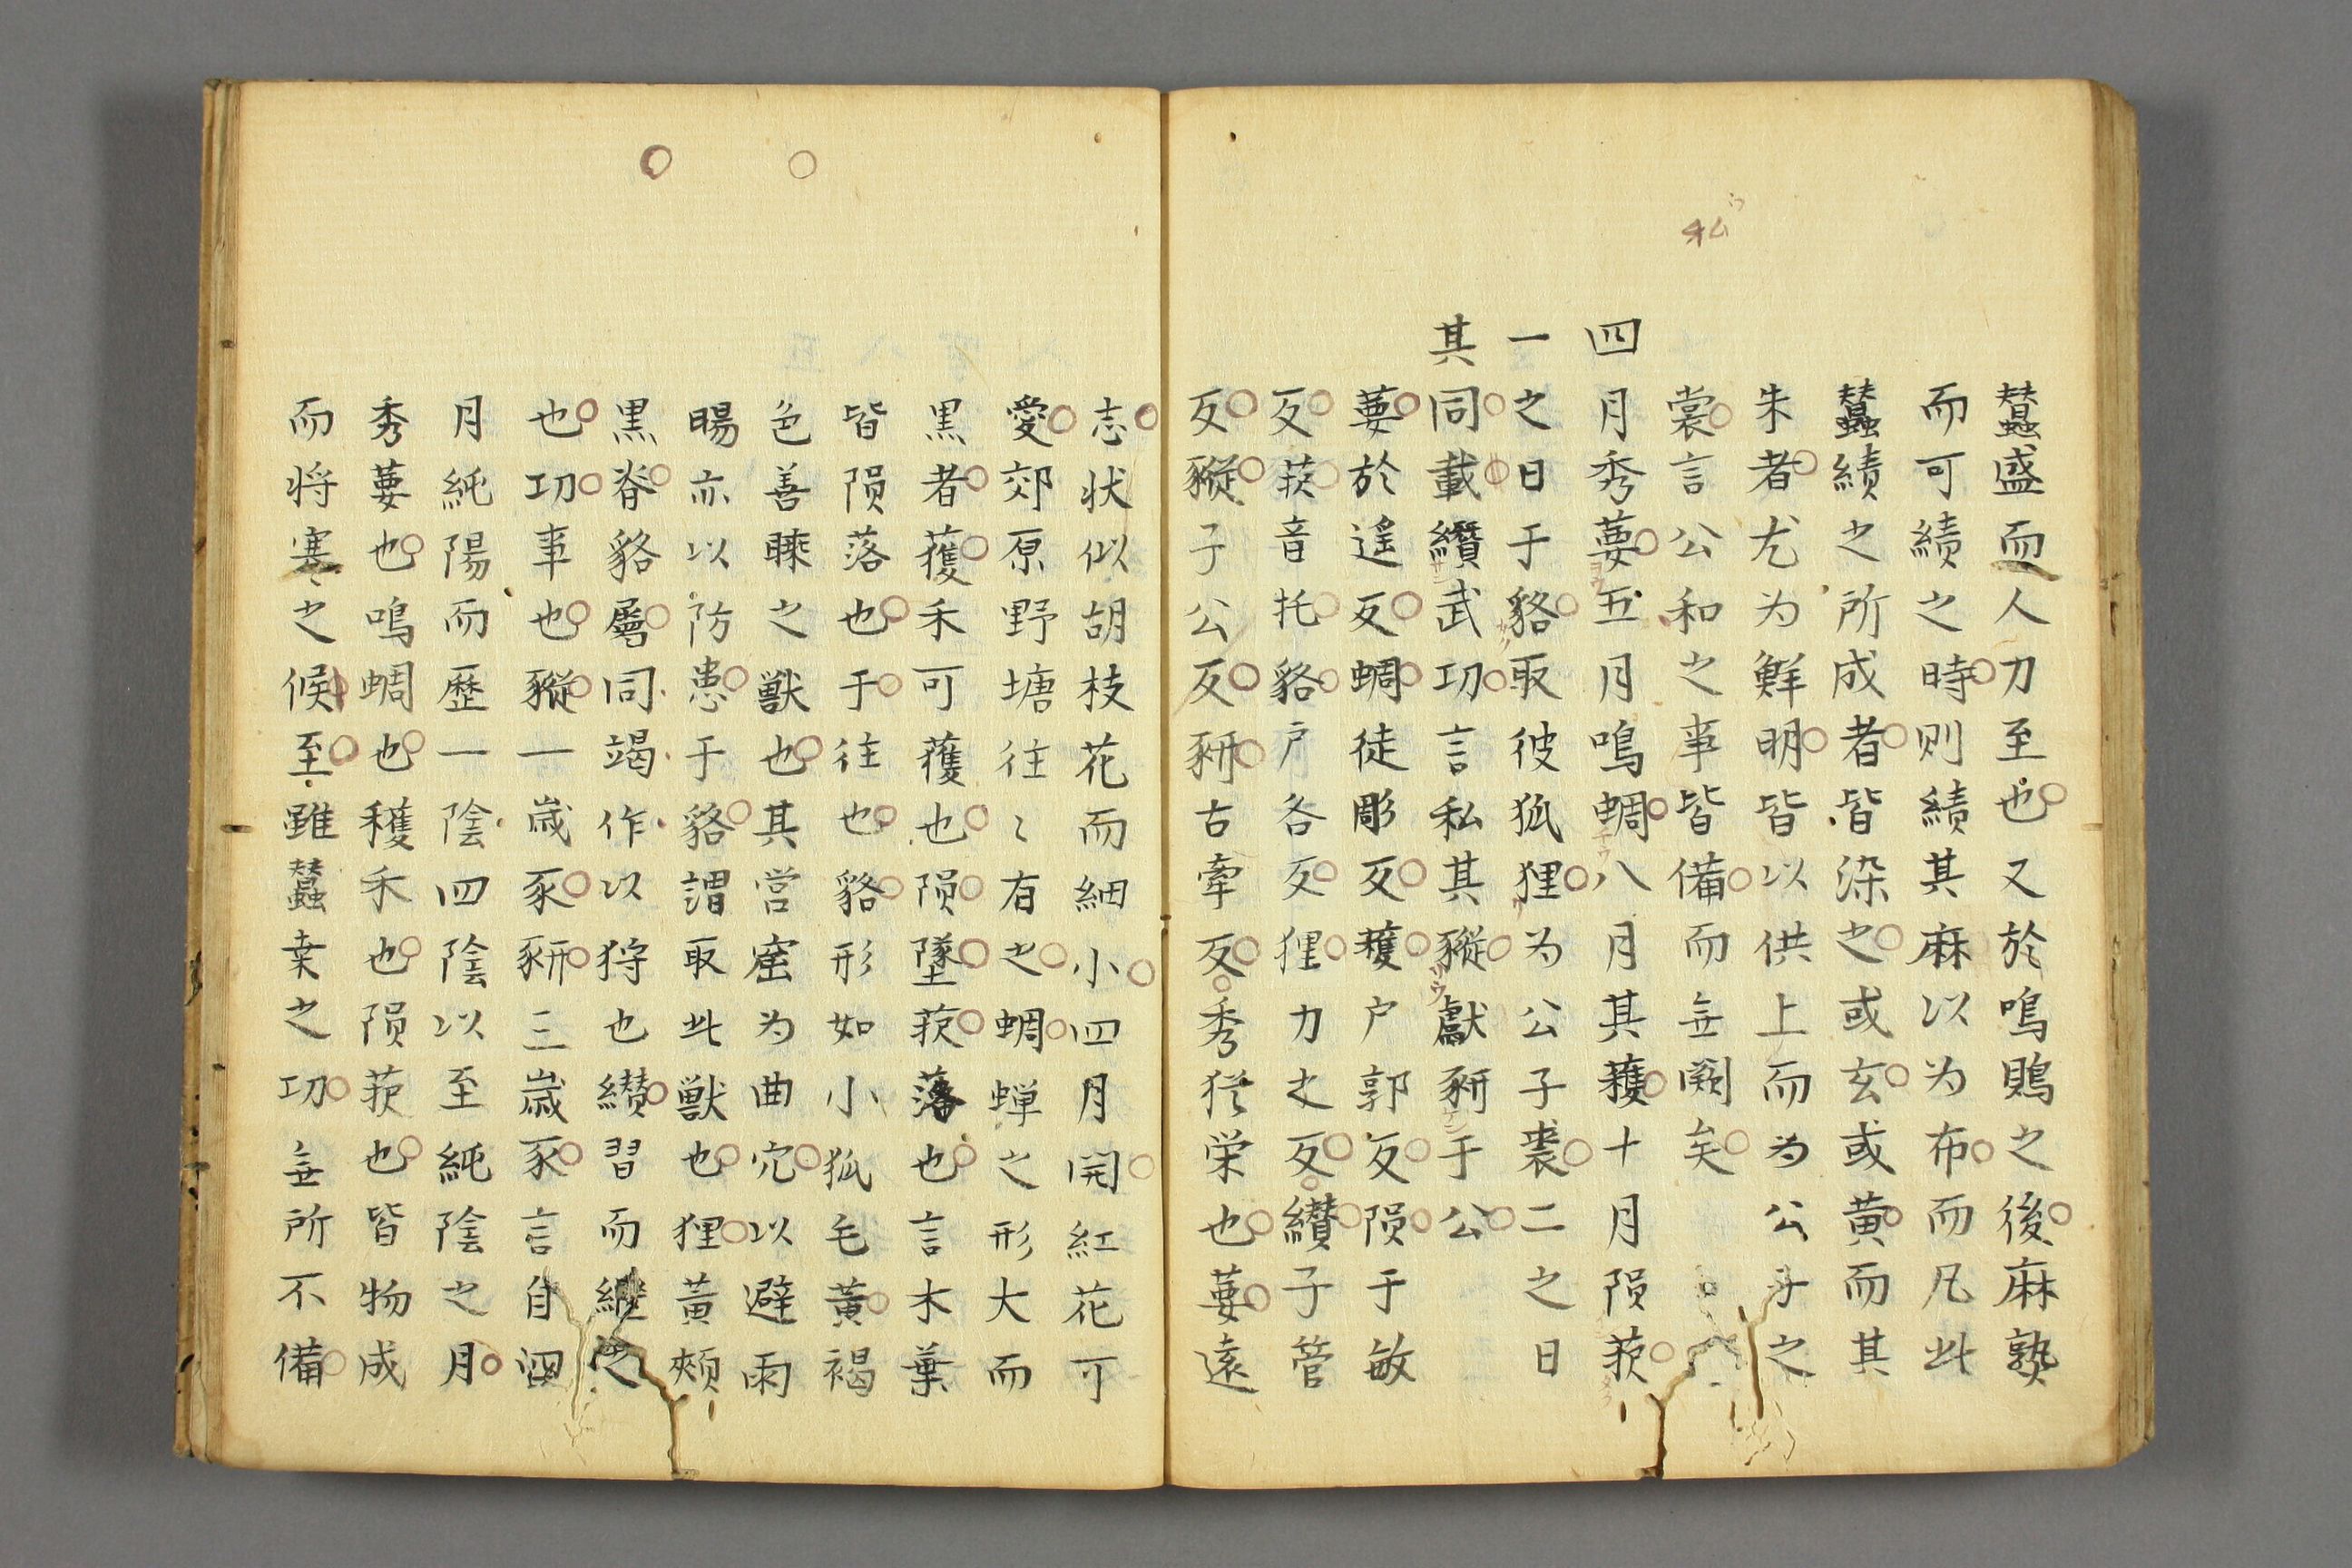 蠶盛而人力至也又於鳴鵙之後麻熟
而可績之時則績其麻以为布而凡此
蠶績之所成者皆染之或玄或黄而其
朱者尤为鮮明皆以供上而为公子之
裳言公和之事皆備而無闕矣
私
四月秀葽五月鳴蜩八月其穫十月隕蘀
一之日于貉取彼狐狸为公子裘二之日
其同載纘武功言私其豵獻豜于公
葽於遥反蜩徒彫反穫户郭反隕于敏
反蘀音托貉户各反狸力之反纘子管
反豵子公反豜古牽反秀從栄也葽遠
志状似胡枝花而細小四月開紅花可
愛郊原野塘往〻有之蜩蝉之形大而
黒者獲禾可獲也隕墜蘀落也言木葉
皆隕落也于往也貉形如小狐毛黃褐
色善睡之獣也其営窟为曲穴以避雨
暘亦以防患于貉謂取此獣也狸黄頰
黒脊貉屬同竭作以狩也纘習而継之
也功事也豵一歳豕豜三歳豕言自四
月純陽而歴一陰四陰以至純陰之月
秀葽也鳴蜩也穫禾也隕蘀也皆物成
而将寒之候至雖蠶桒之功無所不備